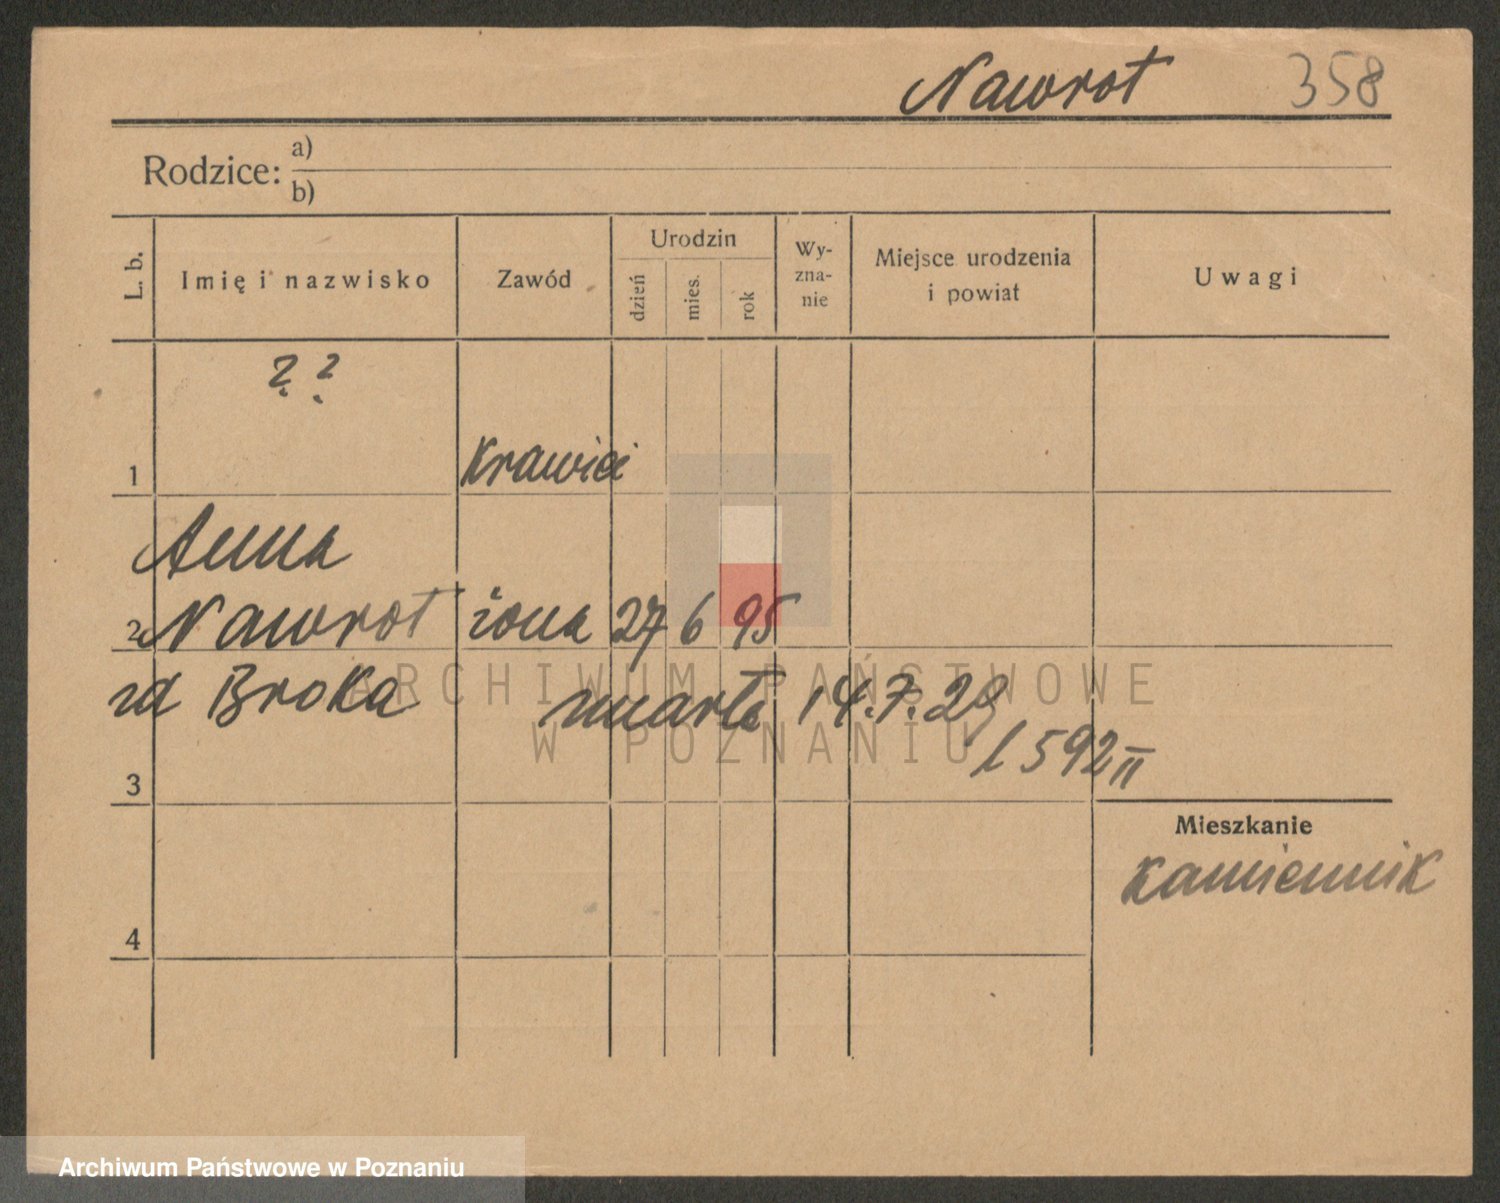 Nawrot 358
Rodzice: a)
b)
L. b.
Imię i nazwisko
Zawód
Urodzin
dzień
mies.
rok
Wy-
zna-
nie
Miejsce urodzenia
i powiat
Uwagi
? ?
1 Krawiec
Anna
2 Nawrot żona 27 6 95
zd Broka umarła 14.7.29
L 592 II
3
Mieszkanie
Kamiennik
4
ARCHIWUM PAŃSTWOWE
W POZNANIU
Archiwum Państwowe w Poznaniu